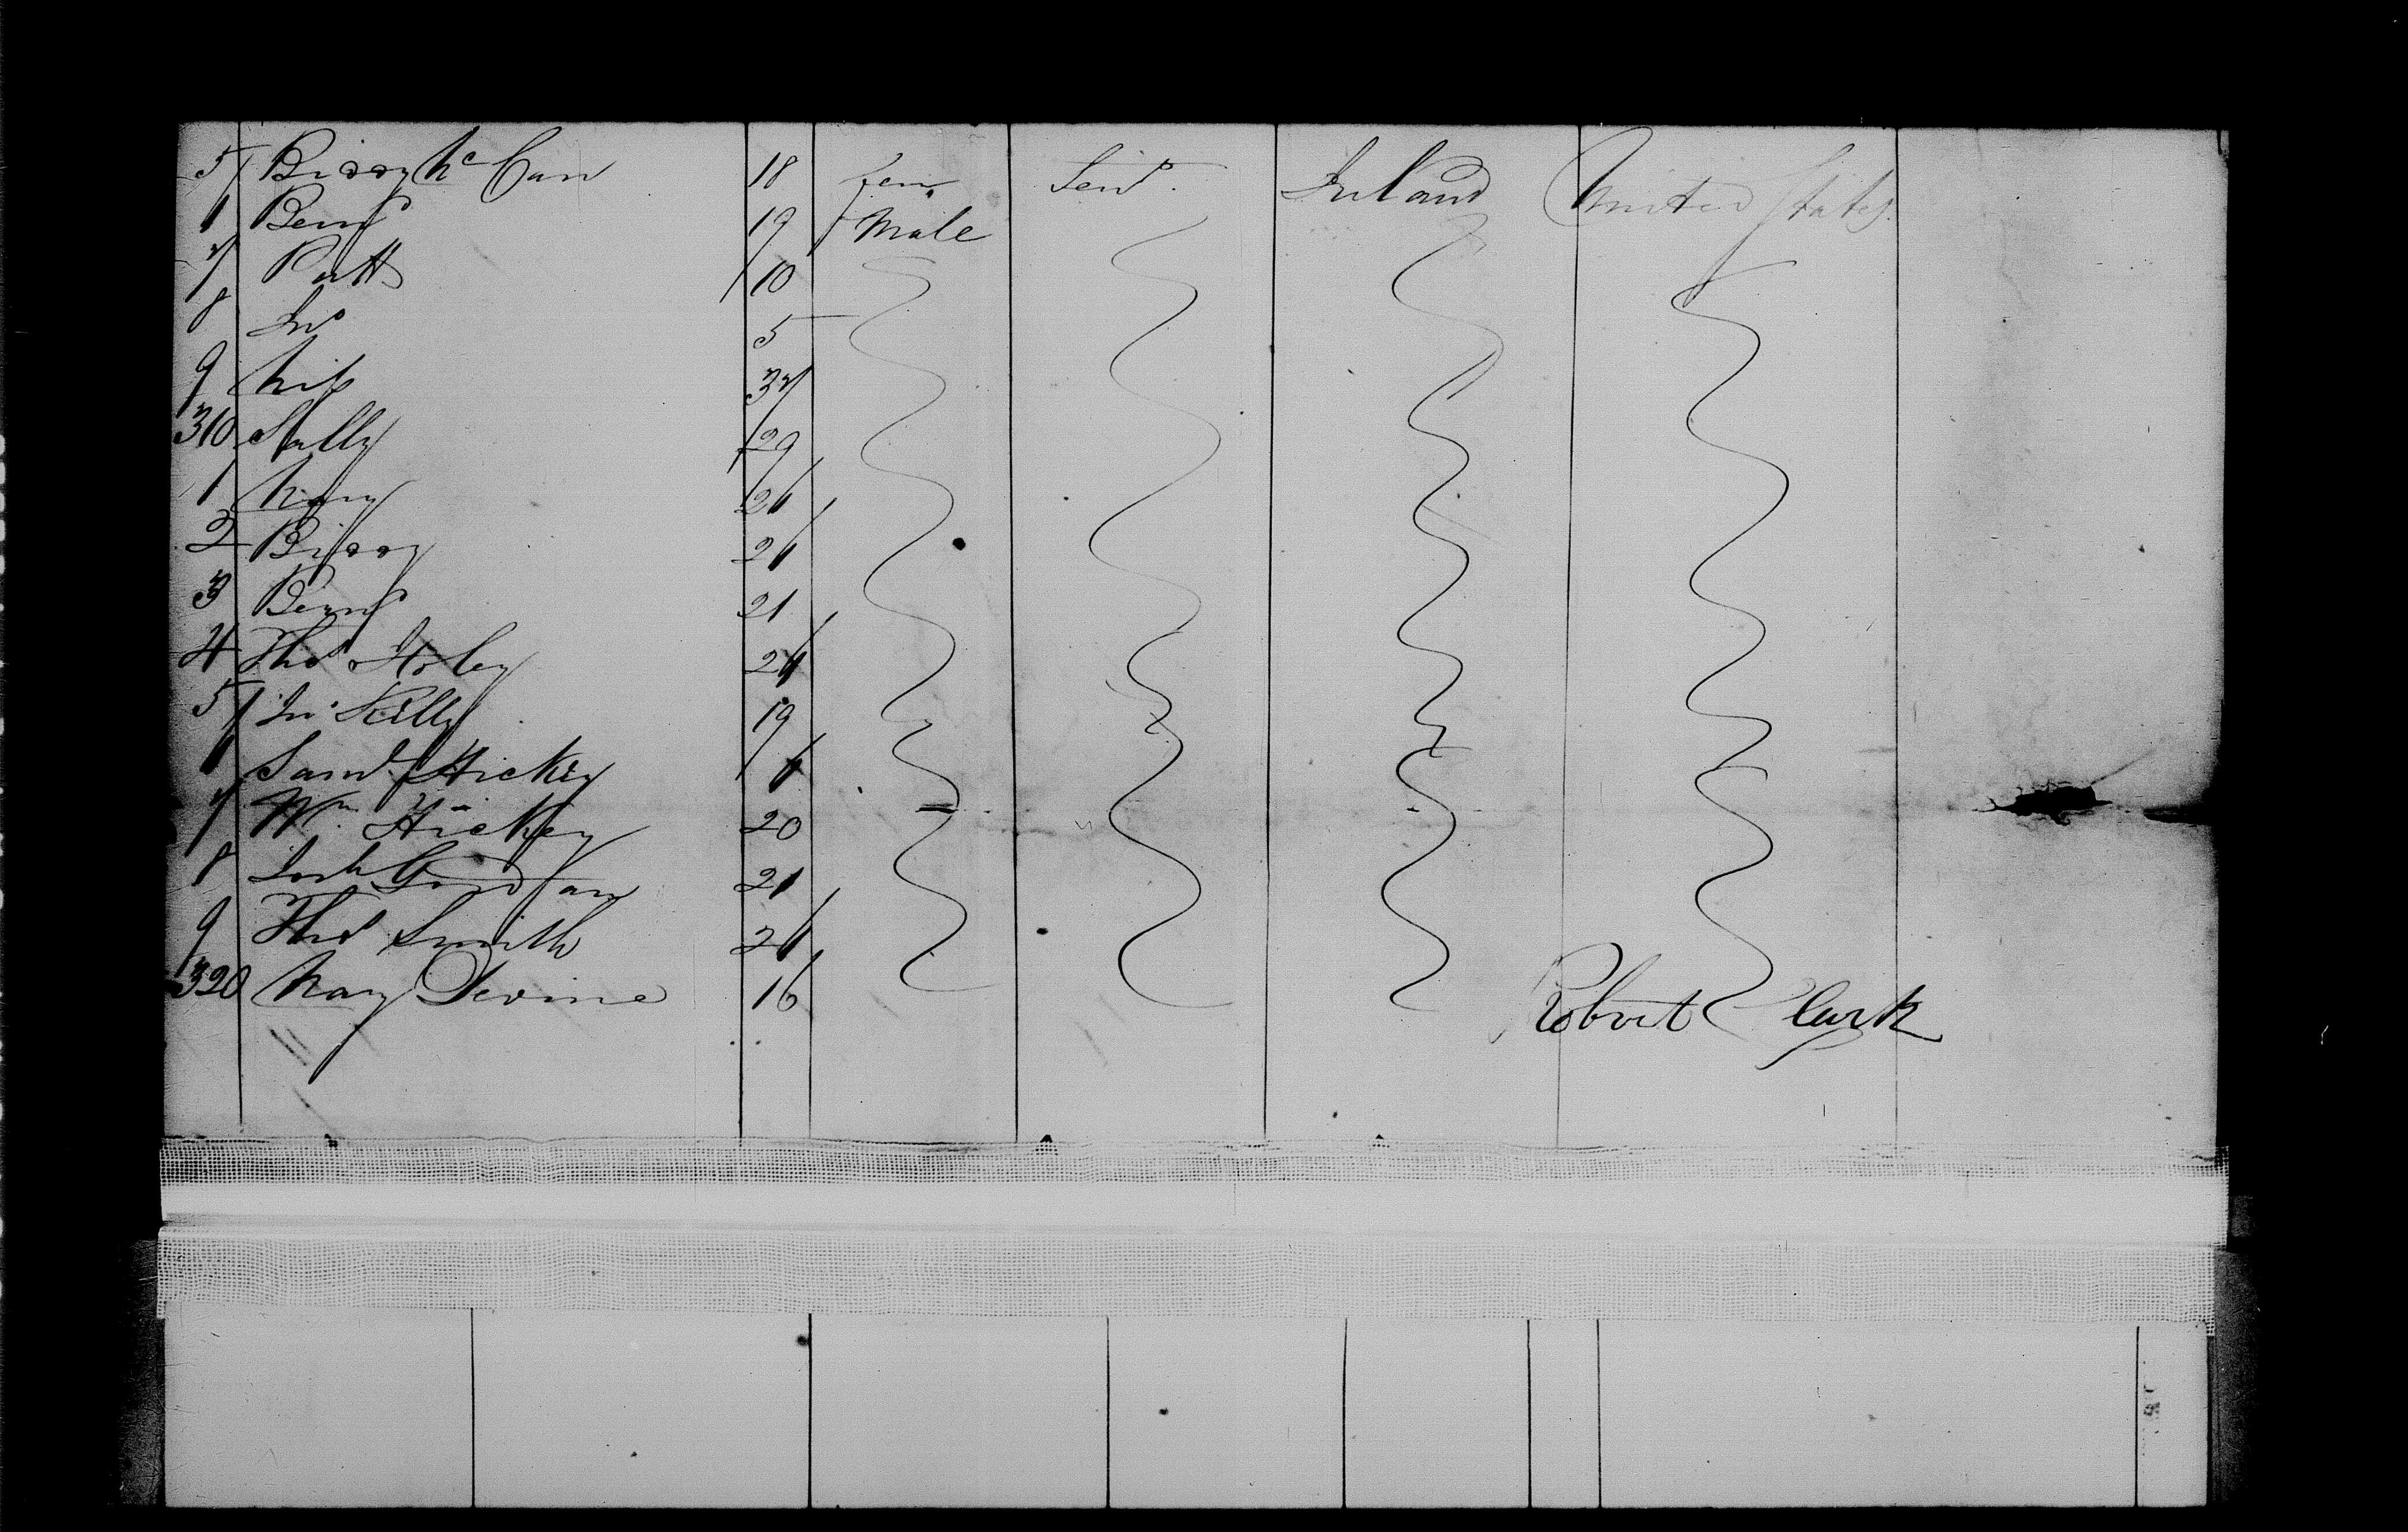 5 Biddy Mc Can 18 fem Serv.t Ireland United States
6 Bernd 19 Male
7 Patt 10
8 Jno 5
9 37
310 Sally 29
1 Mary 26
2 Biddy 26
3 Bernd 21
4 Thos 26
5 Jno Kelly 19
6 Saml Hickey 6
7 Wm Hickey 20
8 Josh 21
9 Thos Smith 26
320 Mary Devine 16
Robert Clark